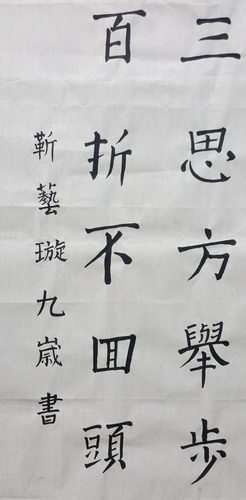 三思方舉步
百折不回頭
靳藝璇九歲書